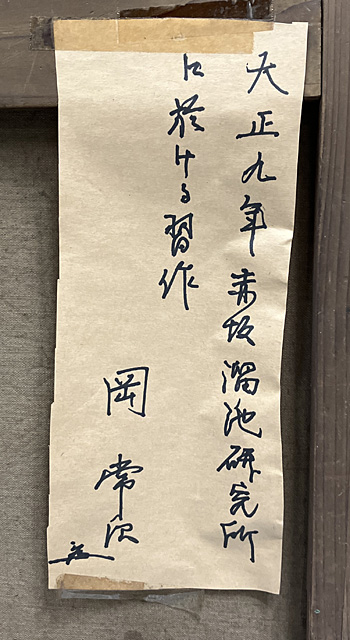 大正九年赤坂溜池研究所
に於ける習作
岡 常次